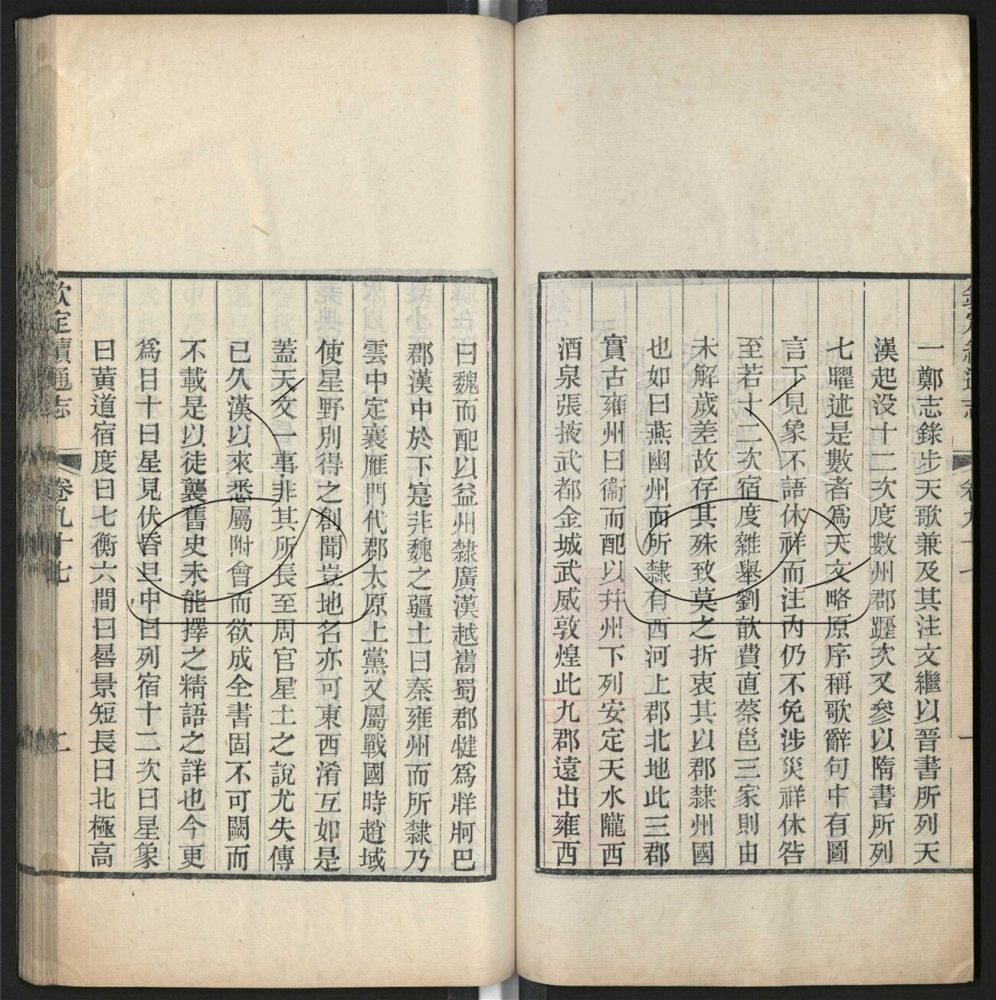 一鄭志錄步天歌兼及其注文繼以晉書所列天
漢起没十二次度數州郡躔次又參以隋書所列
七曜述是數者爲天文略原序稱歌辭句中有圖
言下見象不語休祥而注內仍不免涉災祥休咎
至若十二次宿度雜舉劉歆費直蔡邕三家則由
未解歲差故存其殊致莫之折衷其以郡隸州國
也如曰燕幽州而所隸有西河上郡北地此三郡
實古雍州曰衞而配以幷州下列安定天水隴西
酒泉張掖武都金城武威敦煌此九郡遠出雍西
曰魏而配以益州隸廣漢越巂蜀郡犍爲牂牁巴
郡漢中於下寔非魏之疆土曰秦雍州而所隸乃
雲中定襄雁門代郡太原上黨又屬戰國時趙域
使星野別得之創聞豈地名亦可東西淆互如是
蓋天文一事非其所長至周官星土之說尤失傳
已久漢以來悉屬附會而欲成全書固不可闕而
不載是以徒襲舊史未能擇之精語之詳也今更
爲目十曰星見伏昏旦中曰列宿十二次曰星象
曰黃道宿度曰七衡六間曰晷景短長曰北極高
欽定續通志
卷九十七
二